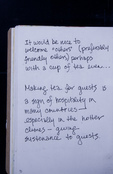 It would be nice to
welcome "others" (preferably
friendly others) perhaps
with a cup of tea even...
Making tea for guests is
a sign of hospitality in
many countries -
especially in the
climes - giving
sustenance to guests.